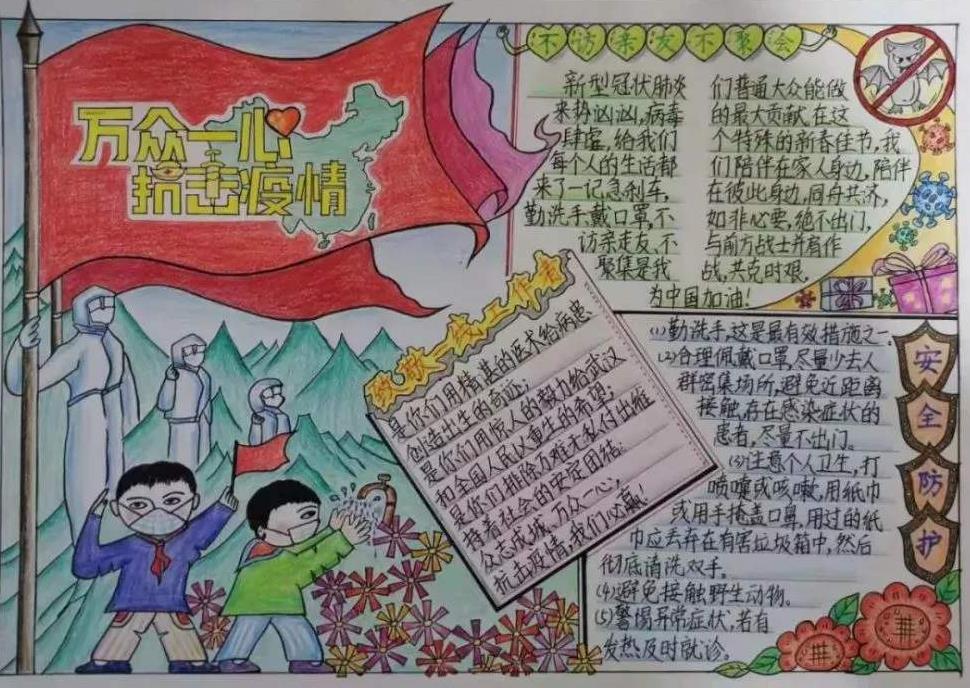 万众一心
抗击疫情
不访亲友不聚会
新型冠状肺炎
来势汹汹,病毒
肆虐,给我们
每个人的生活都
来了一记急刹车,
勤洗手戴口罩,不
访亲走友、不
聚集是我
们普通大众能做
的最大贡献,在这
个特殊的新春佳节,我
们陪伴在家人身边,陪伴
在彼此身边,同舟共济,
如非必要,绝不出门,
与前方战士并肩作
战,共克时艰,
为中国加油!
致敬一线工作者
是你们用精甚的医术给病患
创造出生的奇迹;
是你们用惊人的毅力给武汉
和全国人民以重生的希望;
是你们排除万难无私付出维
持着社会的安定团结;
众志成诚、万众一心,
抗击疫情,我们必赢!
安全防护
(1)勤洗手,这是最有效措施之一.
(2)合理佩戴口罩,尽量少去人
群密集场所,避免近距离
接触,存在感染症状的
患者,尽量不出门。
(3)注意个人卫生,打
喷嚏或咳嗽,用纸巾
或用手掩盖口鼻,用过的纸
巾应丢弃在有害垃圾箱中,然后
彻底清洗双手。
(4)避免接触野生动物。
(5)警惕异常症状,若有
发热及时就诊。